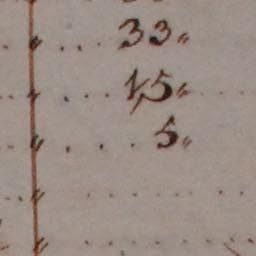 " ... 33 "
" ... 1,5 "
" .... 5 "
" ....
" ....